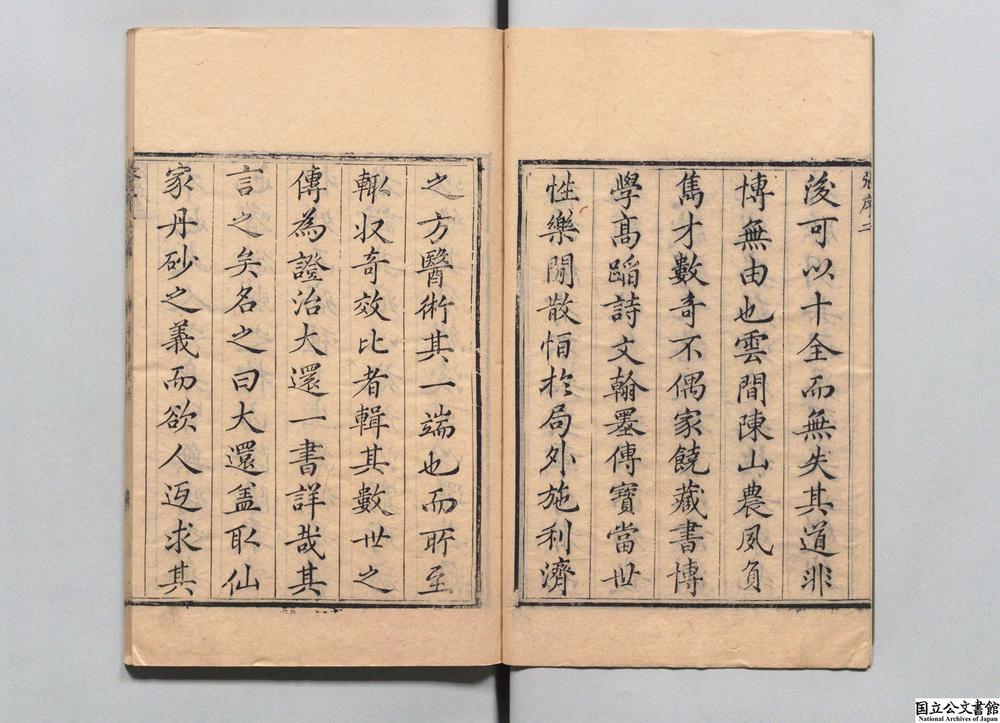 後可以十全而無失其道非
博無由也雲間陳山農夙負
雋才數奇不偶家饒藏書博
學高蹈詩文翰墨傳寶當世
性樂閒散恒於局外施利濟
之方醫術其一端也而所至
輒収奇效比者輯其數世之
傳為證治大還一書詳哉其
言之矣名之曰大還盖取仙
家丹砂之義而欲人返求其
国立公文書館
National Archives of Japan